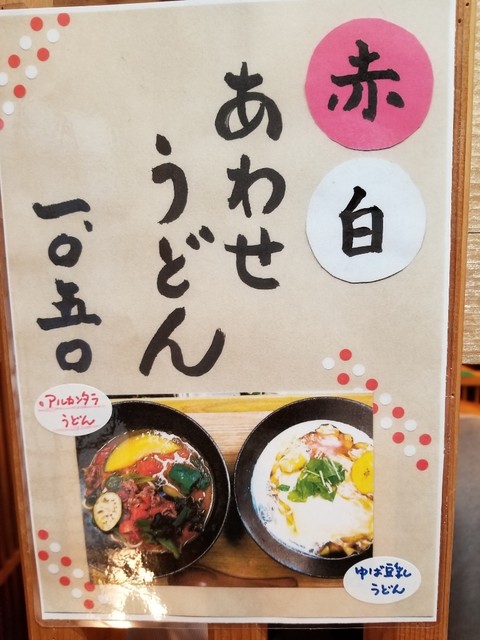 赤
白
あわせ
うどん
一、〇五〇
アルカンタラ
うどん
ゆば豆乳
うどん